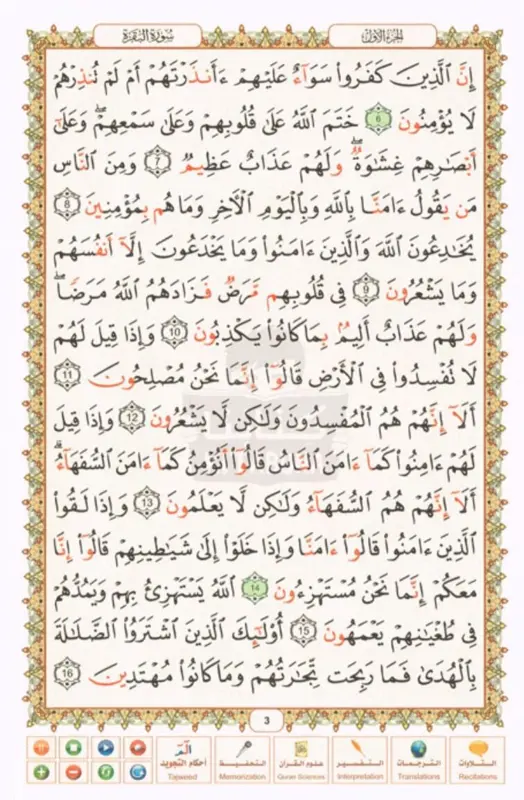 الجزء الأول
سورة البقرة
إِنَّ ٱلَّذِينَ كَفَرُوا۟ سَوَآءٌ عَلَيْهِمْ ءَأَنذَرْتَهُمْ أَمْ لَمْ تُنذِرْهُمْ
لَا يُؤْمِنُونَ 6 خَتَمَ ٱللَّهُ عَلَىٰ قُلُوبِهِمْ وَعَلَىٰ سَمْعِهِمْ ۖ وَعَلَىٰٓ
أَبْصَـٰرِهِمْ غِشَـٰوَةٌ ۖ وَلَهُمْ عَذَابٌ عَظِيمٌ 7 وَمِنَ ٱلنَّاسِ
مَن يَقُولُ ءَامَنَّا بِٱللَّهِ وَبِٱلْيَوْمِ ٱلْـَٔاخِرِ وَمَا هُم بِمُؤْمِنِينَ 8
يُخَـٰدِعُونَ ٱللَّهَ وَٱلَّذِينَ ءَامَنُوا۟ وَمَا يَخْدَعُونَ إِلَّآ أَنفُسَهُمْ
وَمَا يَشْعُرُونَ 9 فِى قُلُوبِهِم مَّرَضٌ فَزَادَهُمُ ٱللَّهُ مَرَضًا ۖ
وَلَهُمْ عَذَابٌ أَلِيمٌۢ بِمَا كَانُوا۟ يَكْذِبُونَ 10 وَإِذَا قِيلَ لَهُمْ
لَا تُفْسِدُوا۟ فِى ٱلْأَرْضِ قَالُوٓا۟ إِنَّمَا نَحْنُ مُصْلِحُونَ 11
أَلَآ إِنَّهُمْ هُمُ ٱلْمُفْسِدُونَ وَلَـٰكِن لَّا يَشْعُرُونَ 12 وَإِذَا قِيلَ
لَهُمْ ءَامِنُوا۟ كَمَآ ءَامَنَ ٱلنَّاسُ قَالُوٓا۟ أَنُؤْمِنُ كَمَآ ءَامَنَ ٱلسُّفَهَآءُ ۗ
أَلَآ إِنَّهُمْ هُمُ ٱلسُّفَهَآءُ وَلَـٰكِن لَّا يَعْلَمُونَ 13 وَإِذَا لَقُوا۟
ٱلَّذِينَ ءَامَنُوا۟ قَالُوٓا۟ ءَامَنَّا وَإِذَا خَلَوْا۟ إِلَىٰ شَيَـٰطِينِهِمْ قَالُوٓا۟ إِنَّا
مَعَكُمْ إِنَّمَا نَحْنُ مُسْتَهْزِءُونَ 14 ٱللَّهُ يَسْتَهْزِئُ بِهِمْ وَيَمُدُّهُمْ
فِى طُغْيَـٰنِهِمْ يَعْمَهُونَ 15 أُو۟لَـٰٓئِكَ ٱلَّذِينَ ٱشْتَرَوُا۟ ٱلضَّلَـٰلَةَ
بِٱلْهُدَىٰ فَمَا رَبِحَت تِّجَـٰرَتُهُمْ وَمَا كَانُوا۟ مُهْتَدِينَ 16
3
التلاوات
Recitations
الترجمات
Translations
التفسير
Interpretation
علوم القرآن
Quran Sciences
التحفيظ
Memorization
الم
أحكام التجويد
Tajweed